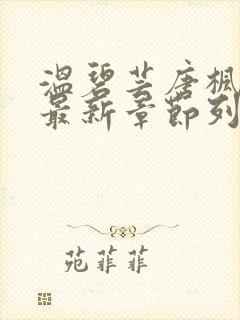 温碧芸唐枫
最新章节列
苑菲菲